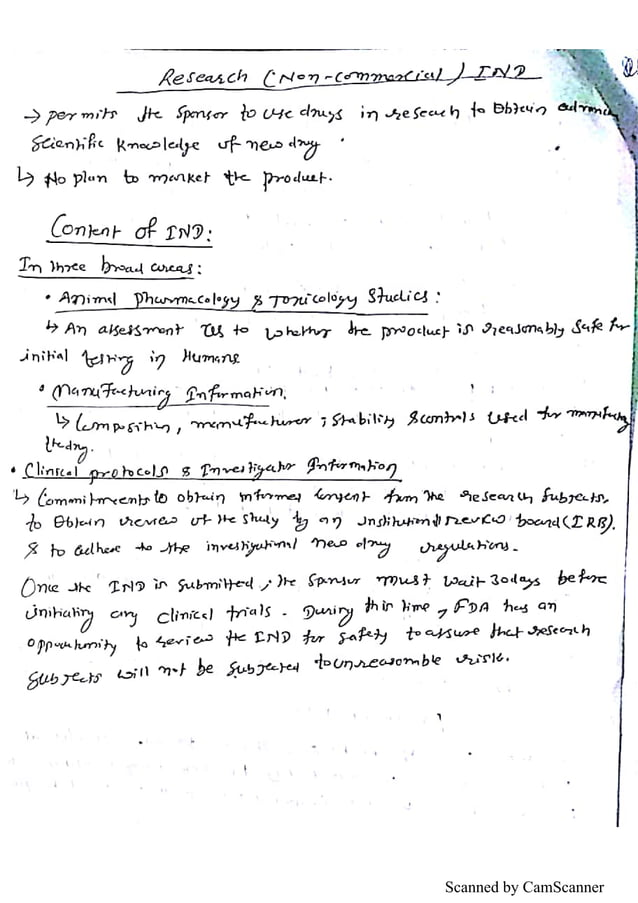 Research (Non-commercial) IND
→ permits the sponsor to use drugs in research to obtain advance
scientific knowledge of new drug.
↳ No plan to market the product.
Content of IND:
In three broad areas:
• Animal pharmacology & Toxicology Studies:
↳ An assessment as to whether the product is reasonably safe for
initial testing in Humans
• Manufacturing Information.
↳ Composition, manufacturer, stability & controls used for manufacturing
the drug.
• Clinical protocols & Investigator Information
↳ Commitments to obtain informed consent from the research subjects,
to obtain review of the study by an institutional review board (IRB).
& to adhere to the investigational new drug regulations.
Once the IND is submitted, the sponsor must wait 30 days before
initiating any clinical trials. During this time, FDA has an
opportunity to review the IND for safety to assure that research
subjects will not be subjected to unreasonable risk.
Scanned by CamScanner